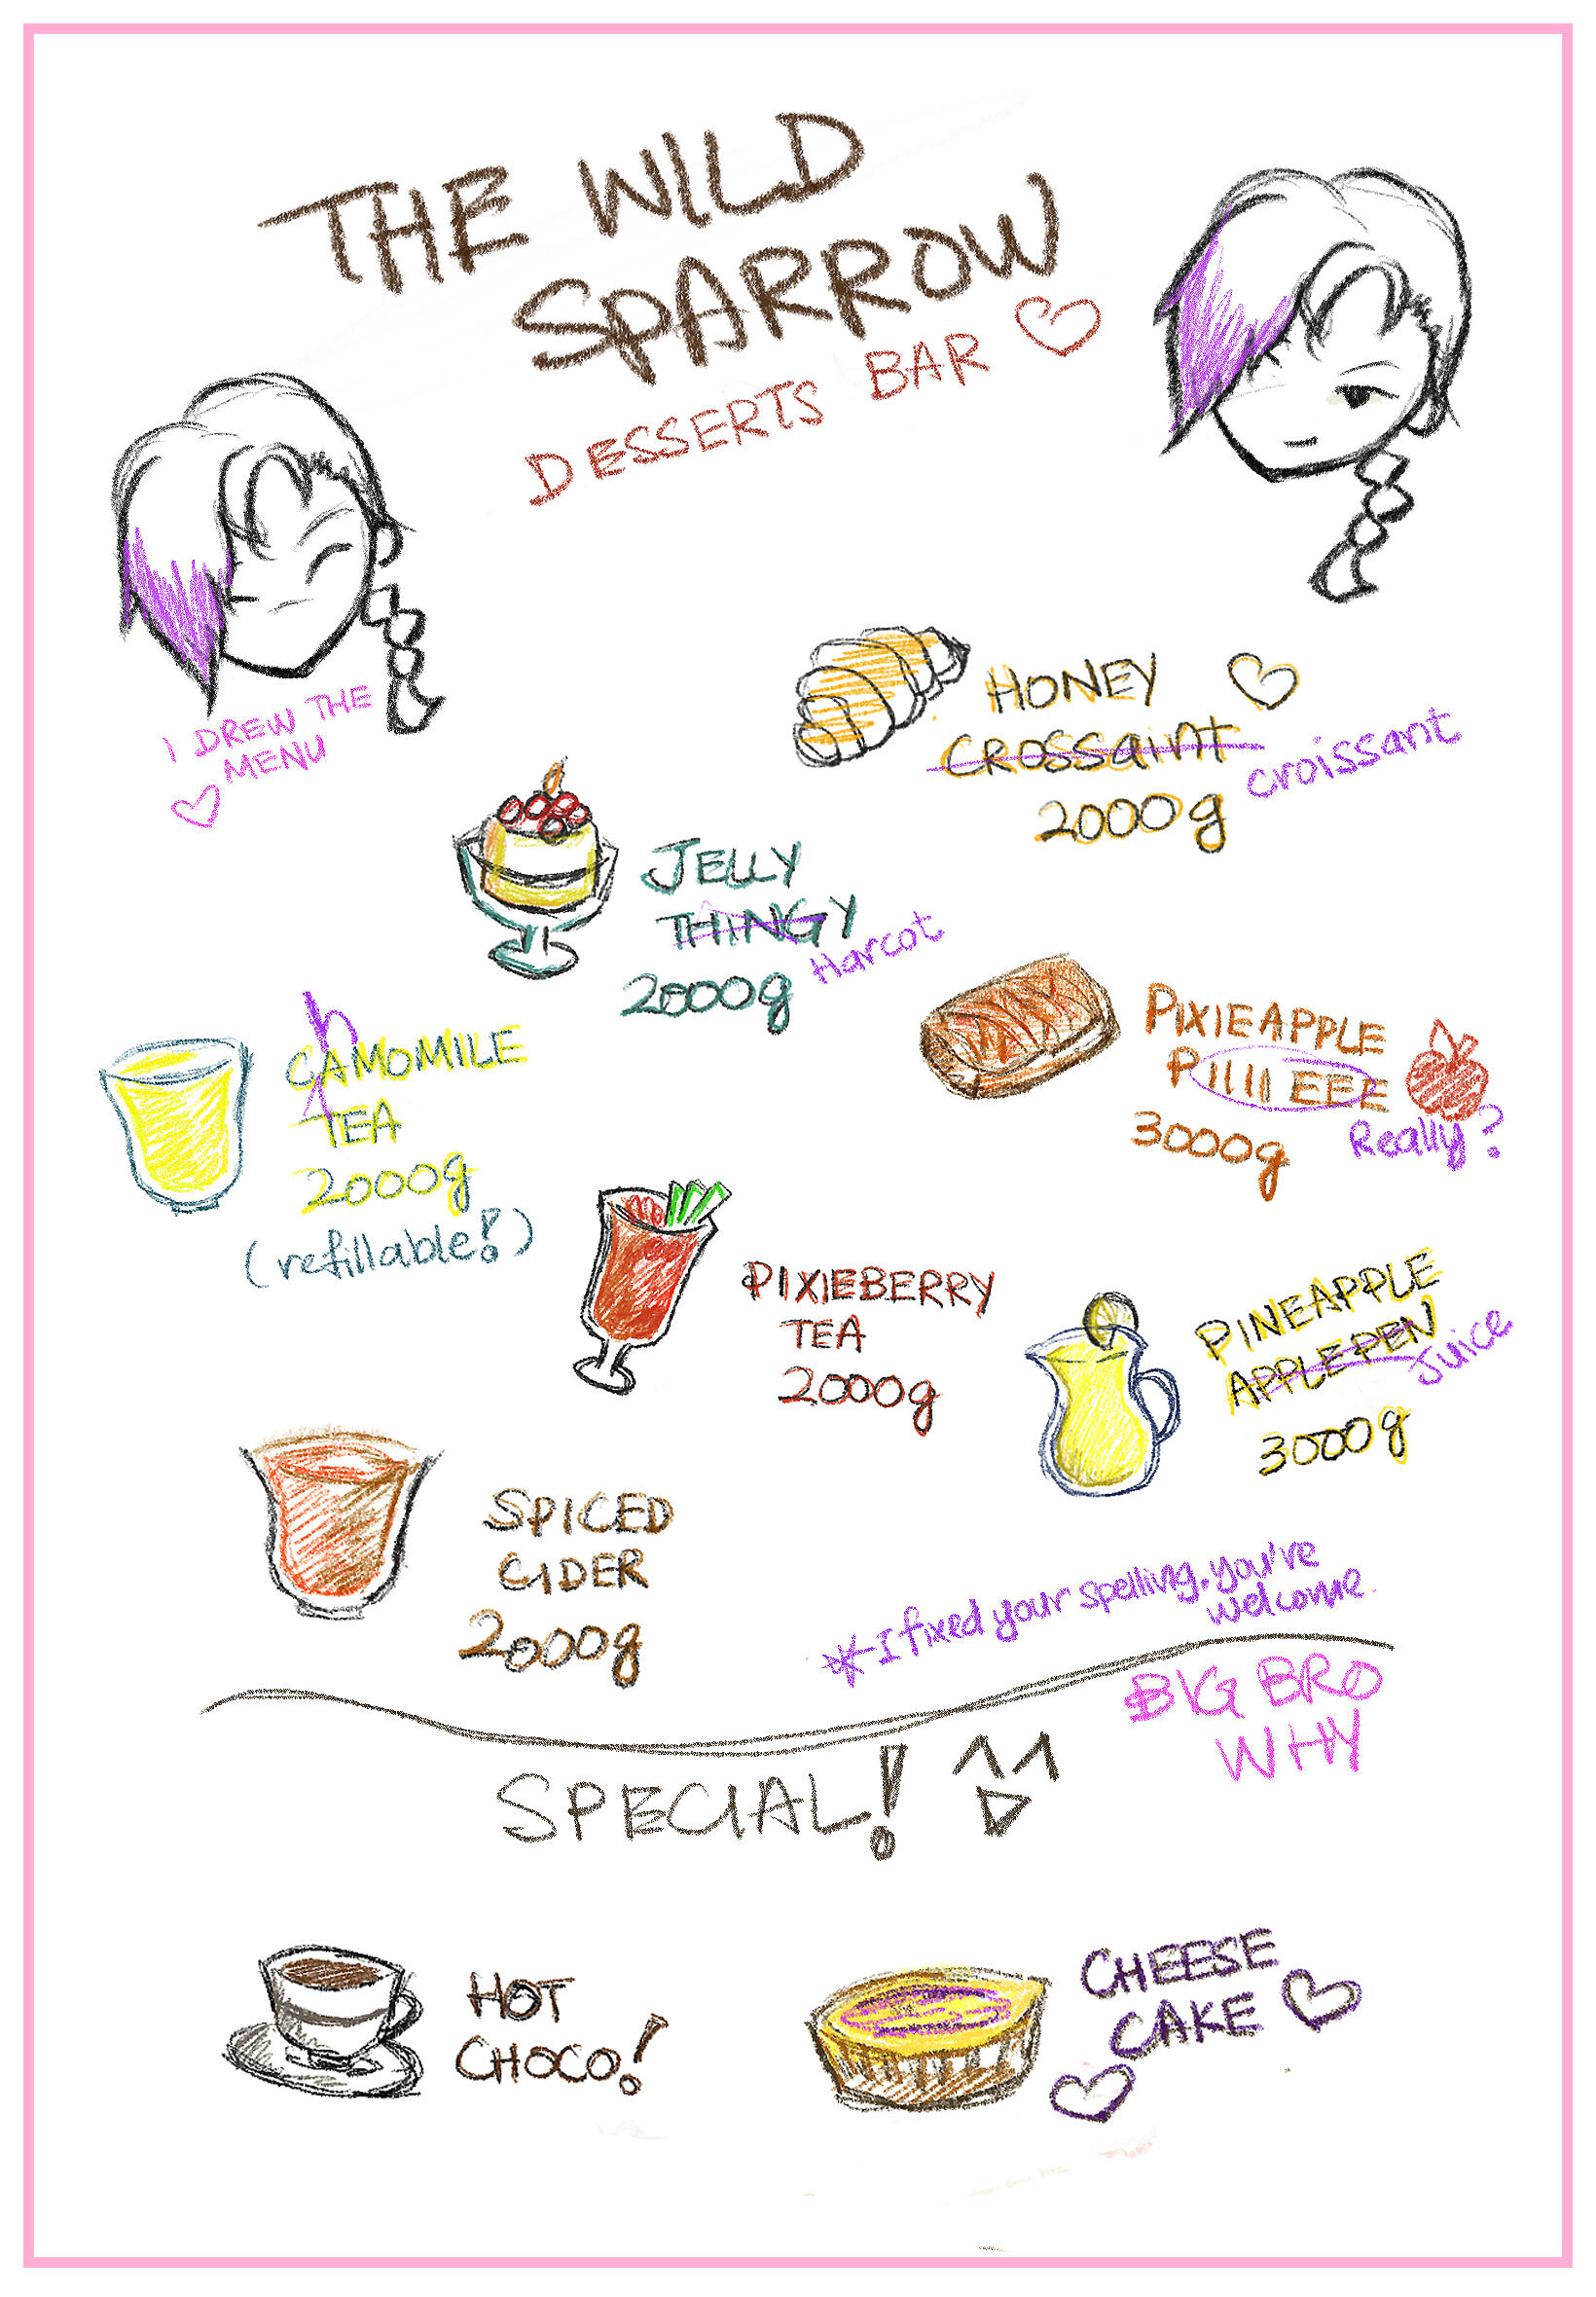 THE WILD
SPARROW
DESSERTS BAR
I DREW THE
MENU
HONEY
CROSSaint croissant
2000g
JELLY
THINGY Harcot
2000g
CAMOMILE h
TEA
2000g
(refillable!)
PIXIEAPPLE
PIIIIEEE
3000g Really?
PIXIEBERRY
TEA
2000g
PINEAPPLE
APPLEPEN Juice
3000g
SPICED
CIDER
2000g
*I fixed your spelling. you're
welcome.
BIG BRO
WHY
SPECIAL!
HOT
CHOCO!
CHEESE
CAKE